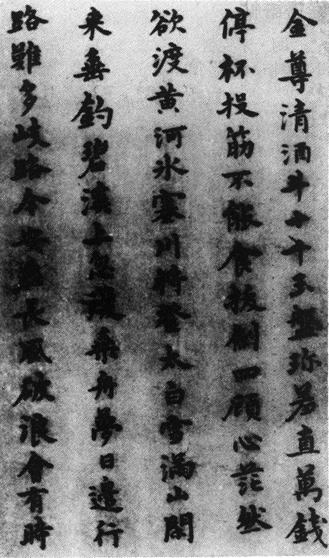 金尊清酒斗十千玉盤珍羞直萬錢
停杯投筯不能食拔劍四顧心茫然
欲渡黃河冰塞川將登太白雪滿山閑
来垂釣碧溪上忽復乘舟夢日邊行
路難多岐路今安在長風破浪會有時